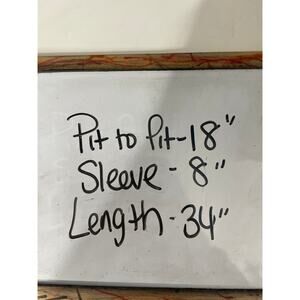 Pit to Pit-18"
Sleeve - 8"
Length - 34"